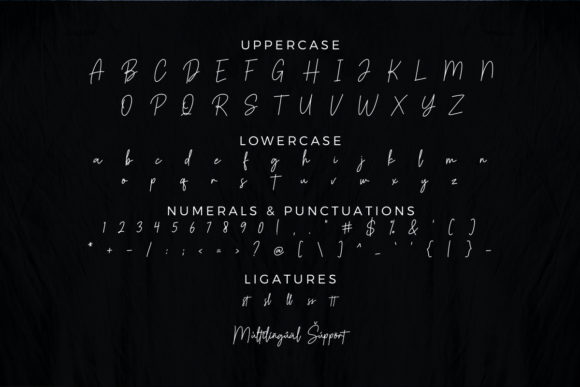 UPPERCASE
A B C D E F G H I J K L M N
O P Q R S T U V W X Y Z
LOWERCASE
a b c d e f g h i j k l m n
o p q r s t u v w x y z
NUMERALS & PUNCTUATIONS
1 2 3 4 5 6 7 8 9 0 ! , . " # $ % & ' ( )
* + - / : ; < = > ? @ [ \ ] ^ _ ` ` { | } -
LIGATURES
st sl ll ss tt
Múltilingúál Šúppórt